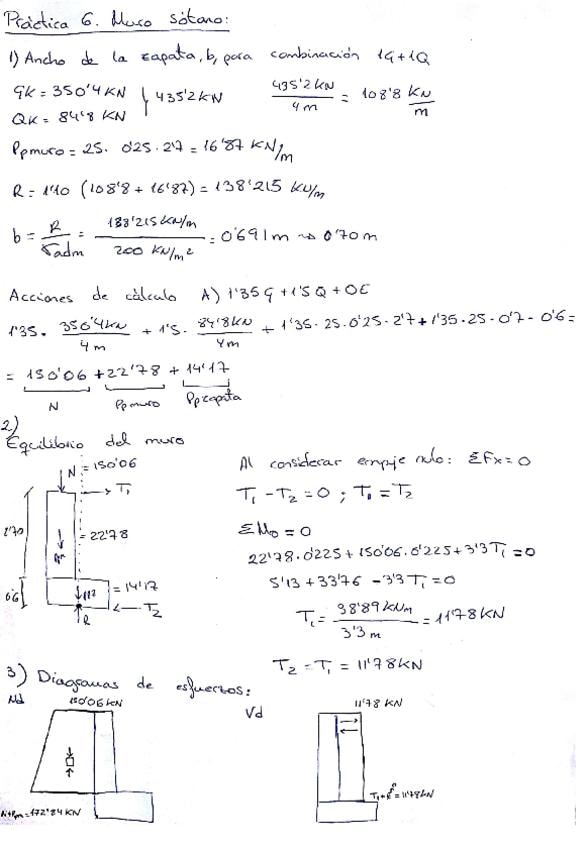 Práctica 6. Muro sótano:
1) Ancho de la zapata, b, para combinación 1G+1Q
GK = 350'4 KN
QK = 84'8 KN
435'2 KN
435'2 KN / 4m = 108'8 KN/m
Ppmuro = 25 · 0'25 · 2'7 = 16'87 KN/m
R = 1'10 (108'8 + 16'87) = 138'215 KN/m
b = R / σadm = 138'215 KN/m / 200 KN/m² = 0'691 m ⇝ 0'70 m
Acciones de cálculo A) 1'35G + 1'5Q + 0E
1'35 · 350'4 KN / 4m + 1'5 · 84'8 KN / 4m + 1'35 · 25 · 0'25 · 2'7 + 1'35 · 25 · 0'7 · 0'6 =
= 150'06 + 22'78 + 14'17
N Ppmuro Ppzapata
2)
Equilibrio del muro
N = 150'06
T₁
2'70
= 22'78
0'6
= 14'17
T₂
R
Al considerar empuje nulo: ΣFx = 0
T₁ - T₂ = 0 ; T₁ = T₂
ΣM₀ = 0
22'78 · 0'225 + 150'06 · 0'225 + 3'3 T₁ = 0
5'13 + 33'76 - 3'3 T₁ = 0
T₁ = 38'89 KNm / 3'3 m = 11'78 KN
T₂ = T₁ = 11'78 KN
3) Diagramas de esfuerzos:
Nd
150'06 KN
N+Pm = 172'84 KN
Vd
11'78 KN
= 11'78 KN